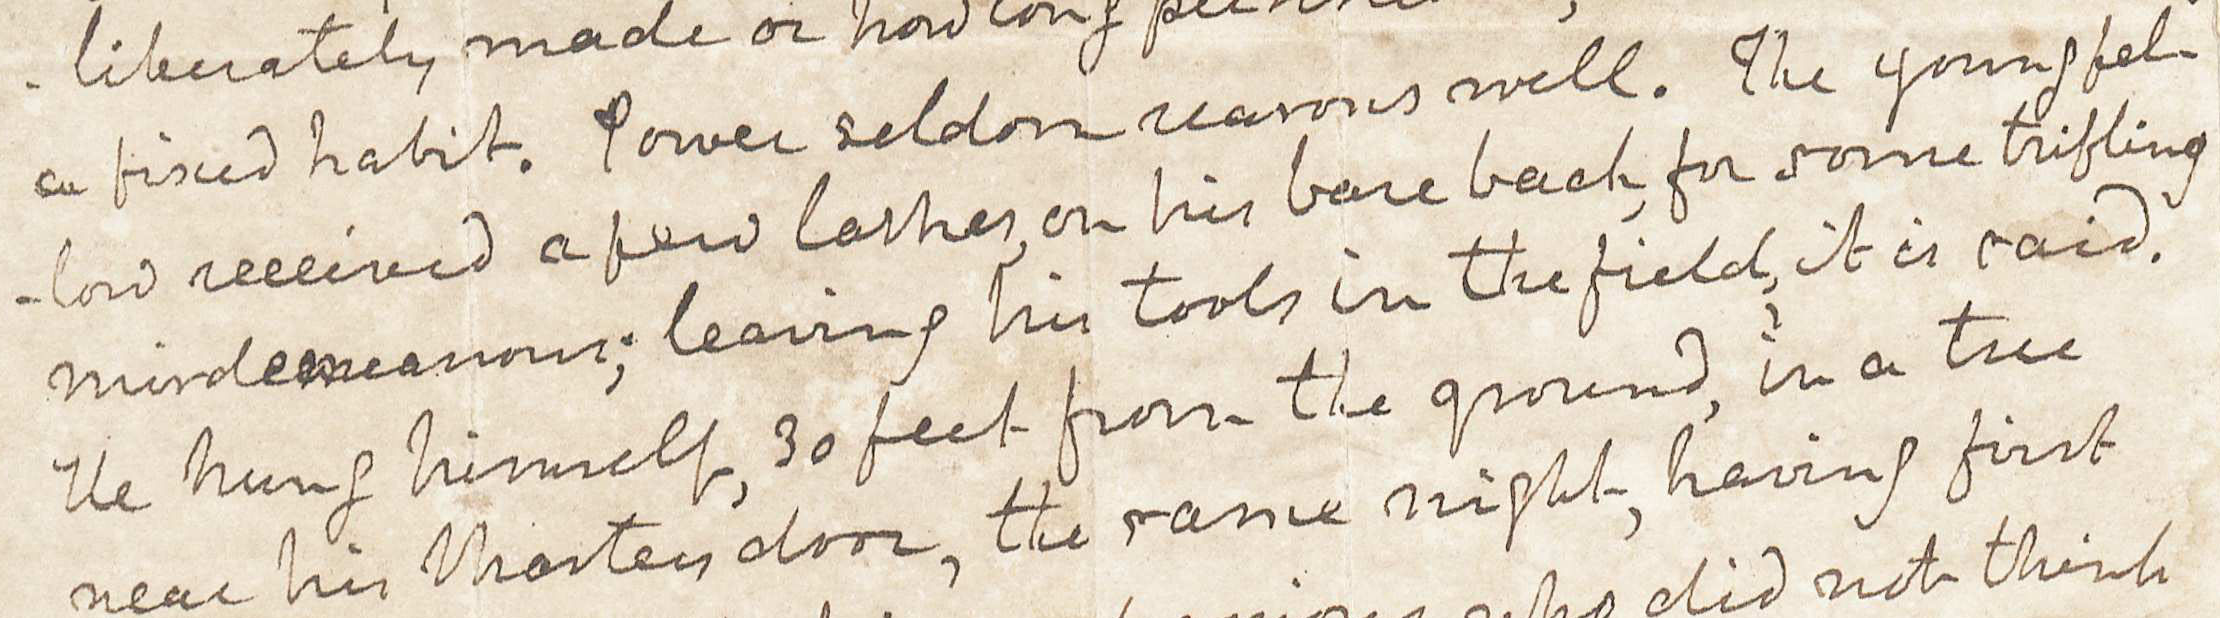 -liberately made or how long
a fixed habit. Power seldom reasons well. The young fel-
-low received a few lashes, on his bare back, for some trifling
misdemeanour; leaving his tools in the field, it is said.
He hung himself, 30 feet from the ground, in a tree
near his Masters door, the same night, having first
who did not think